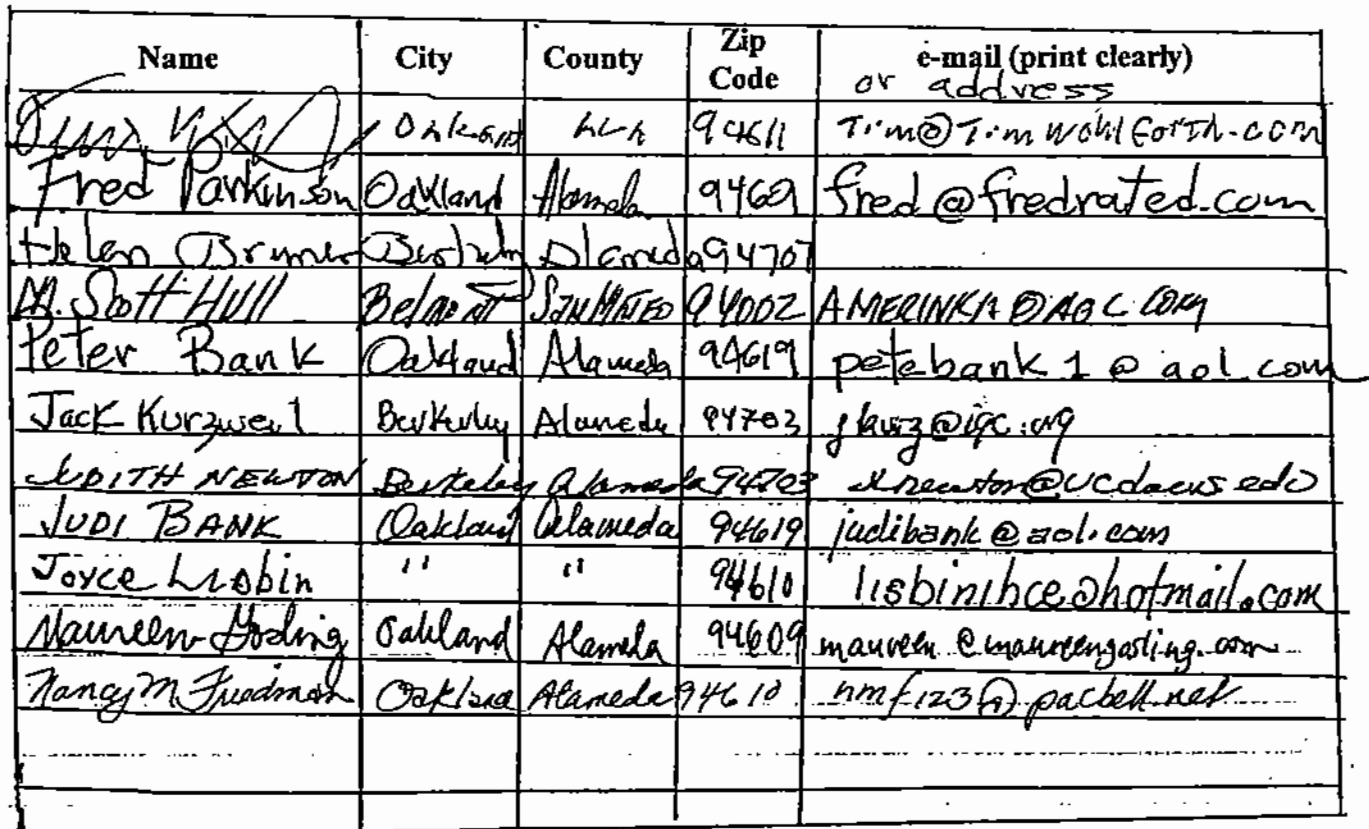 Name City County Zip Code e-mail (print clearly) or address
94611 Tim@Timwohlforth.com
Fred Parkinson Oakland Alameda 94609 fred@fredrated.com
Helen Alameda 94707
M. Scott Hull Belmont SAN MATEO 94002 AMERINKA@AOL.COM
Peter Bank Oakland Alameda 94619 petebank1@aol.com
Jack Kurzweil Berkeley Alameda 94703
JUDITH NEWTON Berkeley Alameda 94703
JUDI BANK Oakland Alameda 94619 judibank@aol.com
Joyce Lisbin " " 94610 lisbinihce@hotmail.com
Maureen Gosling Oakland Alameda 94609 maureen@maureengosling.com
Nancy M Friedman Oakland Alameda 94610 nmf123@pacbell.net